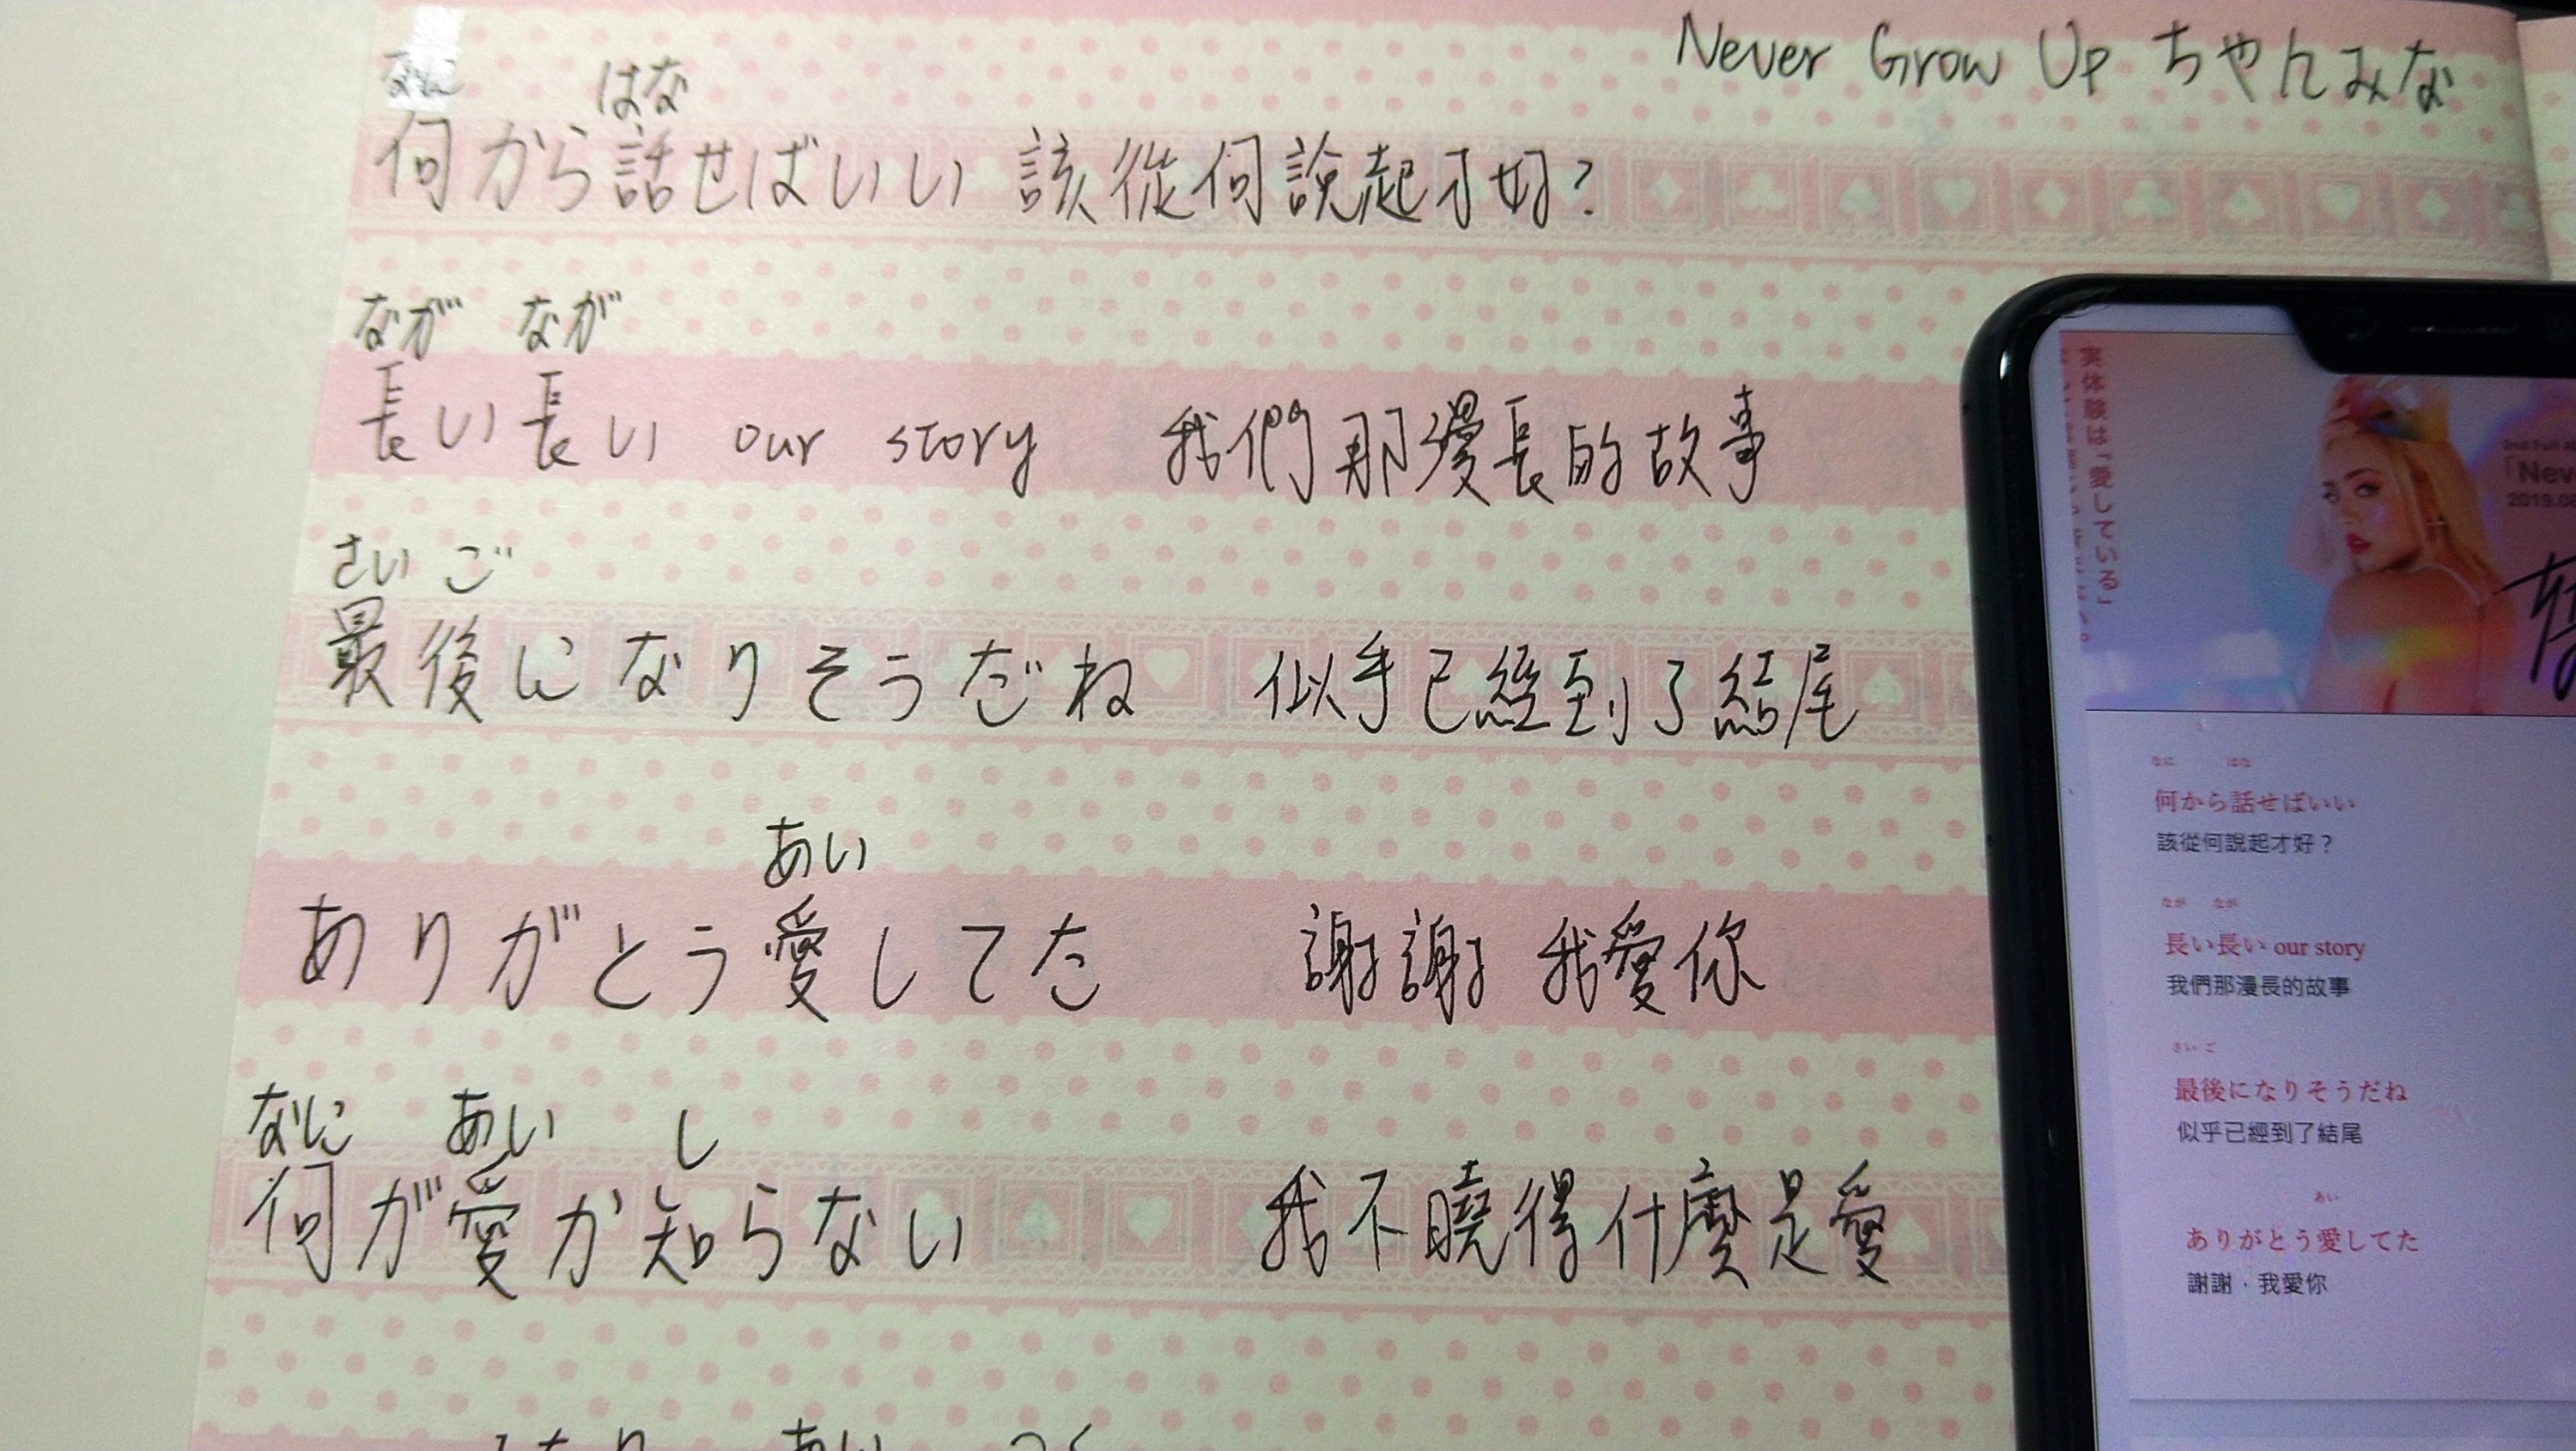 Never Grow Up ちゃんみな
なに はな
何から話せばいい 該從何說起才好？
なが なが
長い長い our story 我們那漫長的故事
さい ご
最後になりそうだね 似乎已經到了結尾
あい
ありがとう愛してた 謝謝 我愛你
なに あい し
何が愛か知らない 我不曉得什麼是愛
実体験は「愛している」
「Nev
なに はな
何から話せばいい
該從何說起才好？
なが なが
長い長い our story
我們那漫長的故事
さい ご
最後になりそうだね
似乎已經到了結尾
あい
ありがとう愛してた
謝謝．我愛你